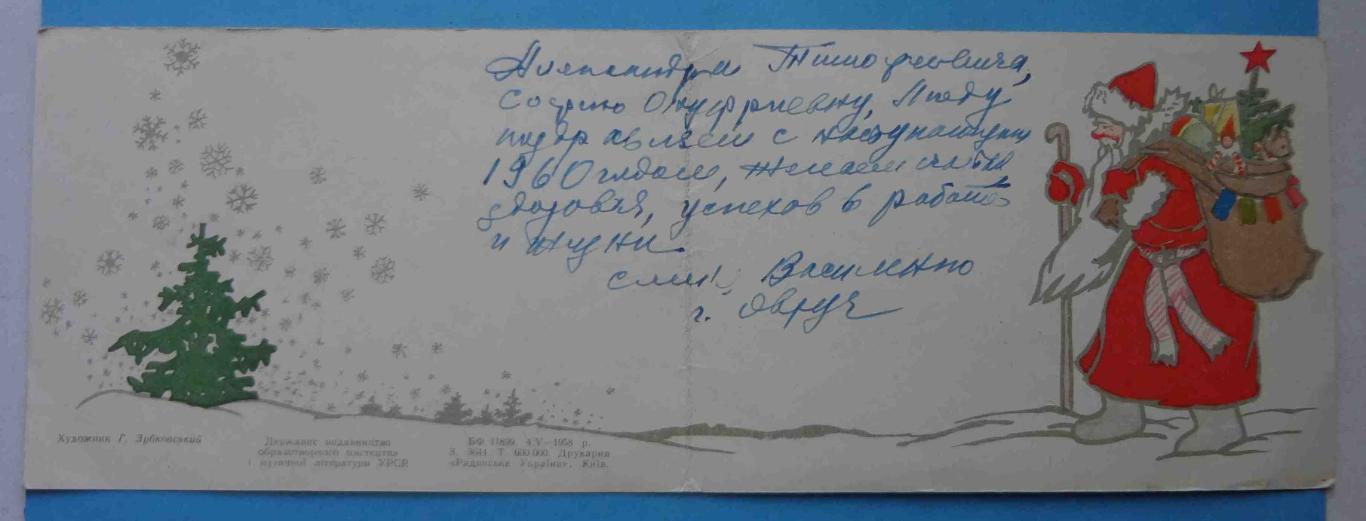 Александра Тимофеевича,
Софию Онуфриевну, Люду
поздравляем с наступающим
1960 годом, желаем счастья
здоровья, успехов в работе
и жизни
Василенко
г. Овруч
Художник Г. Зубковський
Державне видавництво
образотворчого мистецтва
і музичної літератури УРСР
БФ 11899. 4.V—1958 р.
З. 3644. Т. 600.000. Друкарня
«Радянська Україна». Київ.